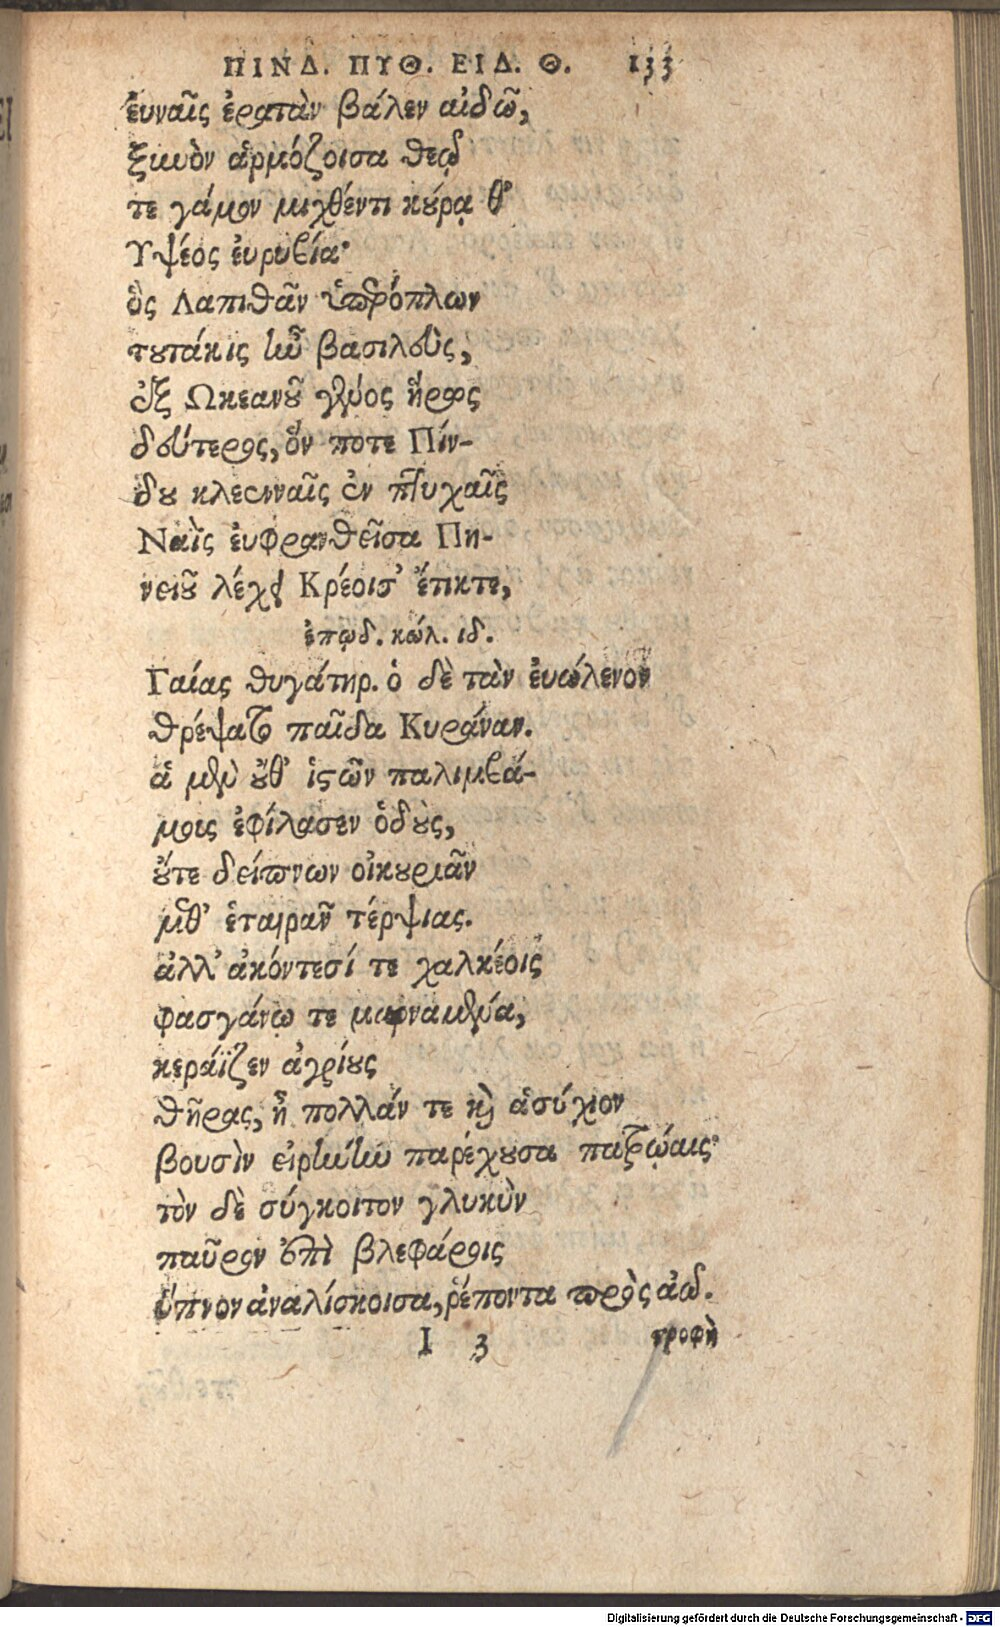 ΠΙΝΔ. ΠΥΘ. ΕΙΔ. Θ. 133
ἐυναῖς ἐρατὰν βάλεν αἰδῶ,
ξιωὸν ἁρμόζοισα θεῷ
τε γάμον μιχθέντι κούρᾳ θ'
Ὑψέος ἐυρυβία·
ὃς Λαπιθᾶν ὑπερόπλων
τουτάκις ἦν βασιλεὺς,
ἐξ Ὠκεανοῦ γένος ἥρως
δεύτερος, ὅν ποτε Πίν-
δου κλεενναῖς ἐν πτυχαῖς
Ναῒς ἐυφρανθεῖσα Πη-
νειοῦ λέχει Κρέοισ' ἔτικτε,
ἐπῳδ. κώλ. ιδ.
Γαίας θυγάτηρ. ὁ δὲ τὰν ἐυώλενον
θρέψατο παῖδα Κυράναν.
ἁ μὲν οὔθ' ἱστῶν παλιμβά-
μοις ἐφίλασεν ὁδοὺς,
οὔτε δείπνων οἰκουριᾶν
μεθ' ἑταιρᾶν τέρψιας.
ἀλλ' ἀκόντεσί τε χαλκέοις
φασγάνῳ τε μαρναμένα,
κεράϊζεν ἀγρίους
θῆρας, ἦ πολλάν τε καὶ ἁσύχιον
βουσὶν εἰρήνην παρέχουσα πατρῴαις·
τὸν δὲ σύγκοιτον γλυκὺν
παῦρον ἐπὶ βλεφάροις
ὕπνον ἀναλίσκοισα, ῥέποντα πρὸς ἀῶ.
I 3 τροφὴ
Digitalisierung gefördert durch die Deutsche Forschungsgemeinschaft - DFG